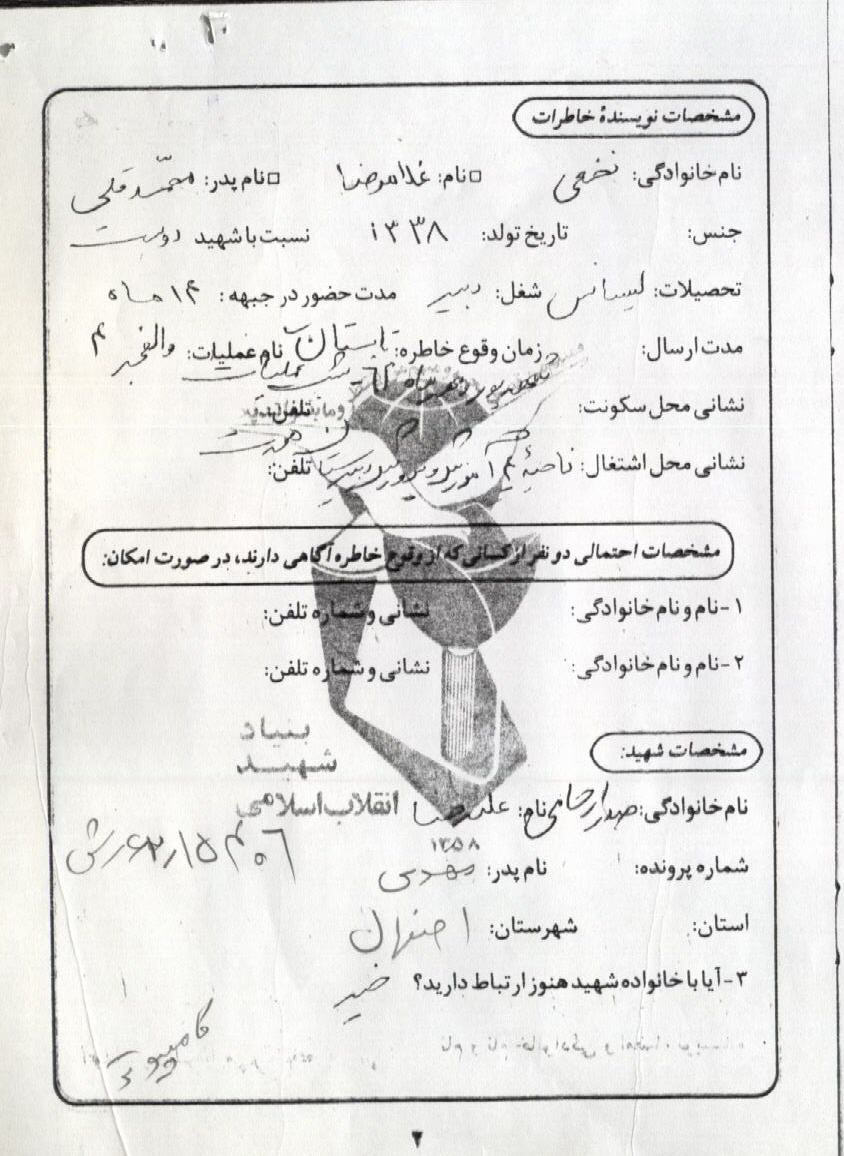 مشخصات نویسندهٔ خاطرات
نام خانوادگی: نخعی □نام: غلامرضا □نام پدر: محمّد قلی
جنس: تاریخ تولد: ۱۳۳۸ نسبت با شهید دوست
تحصیلات: لیسانس شغل: دبیر مدت حضور در جبهه: ۱۴ ماه
مدت ارسال: زمان وقوع خاطره: تابستان نام عملیات: والفجر ۴
عملیات
نشانی محل سکونت: تلفن:
نشانی محل اشتغال: ناحیهٔ ۴ آموزش و پرورش تلفن:
مشخصات احتمالی دو نفر از کسانی که از وقوع خاطره آگاهی دارند، در صورت امکان:
۱-نام و نام خانوادگی: نشانی و شماره تلفن:
۲-نام و نام خانوادگی: نشانی و شماره تلفن:
بنیاد
شهید
انقلاب اسلامی
مشخصات شهید:
نام خانوادگی: نام: علیرضا
۱۳۵۸
شماره پرونده: نام پدر: مهدی
استان: شهرستان: اصفهان
۳-آیا با خانواده شهید هنوز ارتباط دارید؟ خیر
کامپیوتر
۲